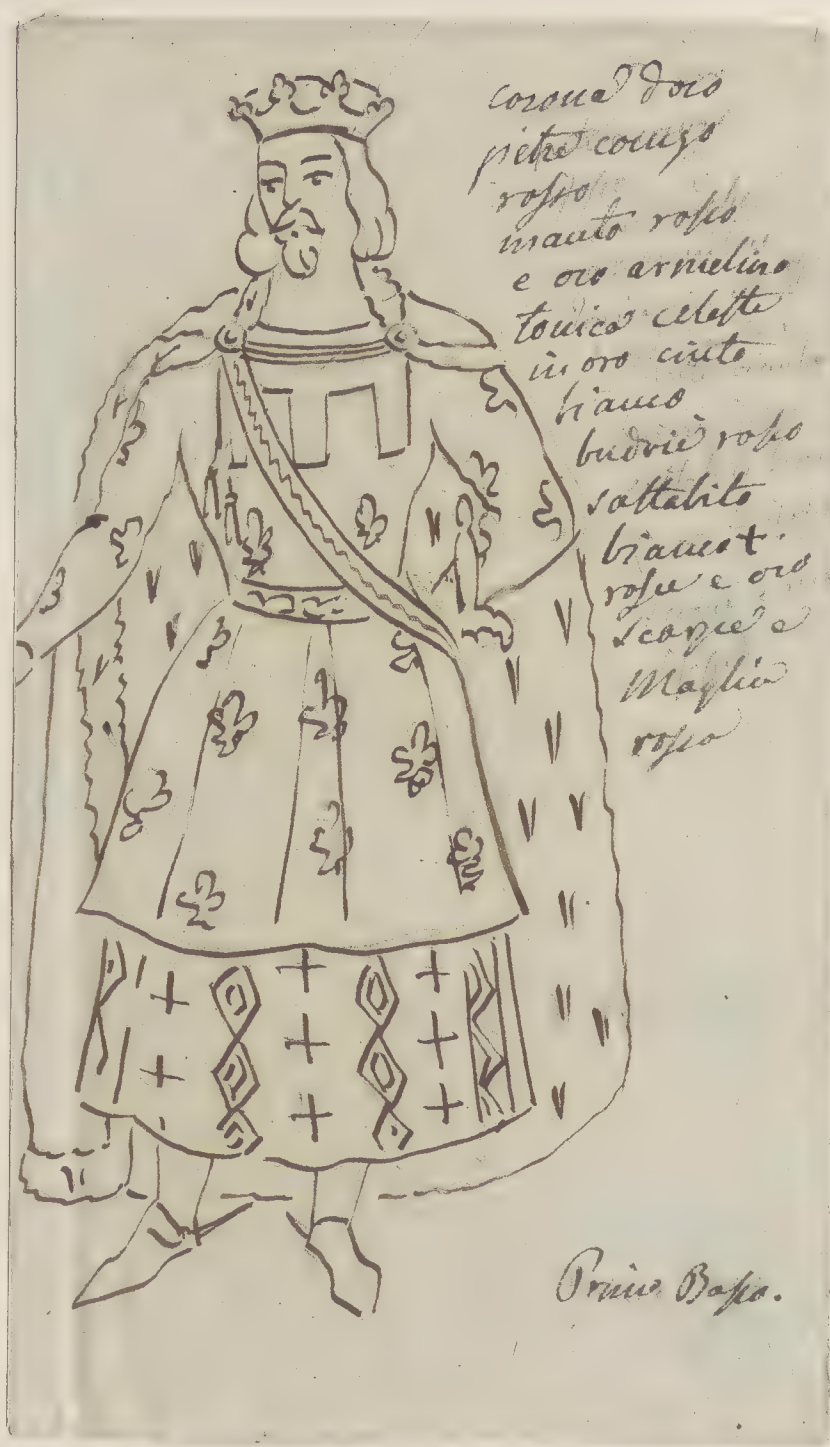 corona d'oro
pietre
rosso
manto rosso
e oro armelino
tonica celeste
in oro cinto
bianco
budriè rosso
sottabito
bianco +
rosse e oro
scarpe e
Maglia
rossa
Primo Basso.